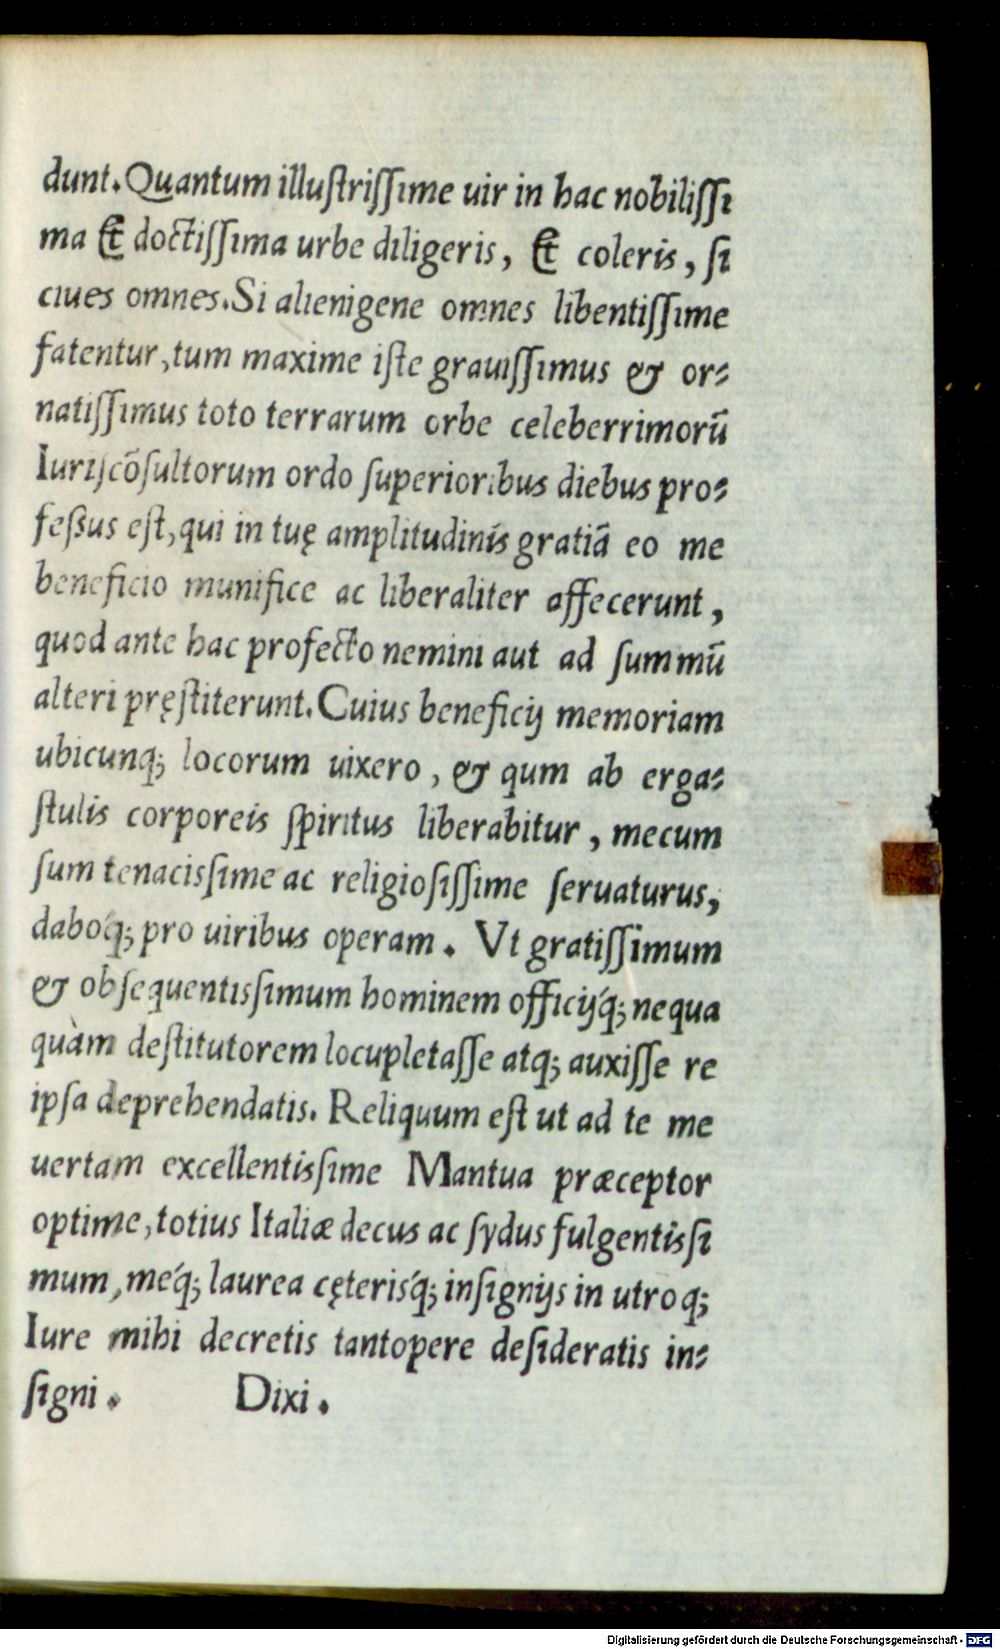 dunt. Quantum illuſtriſſime uir in hac nobiliſſi
ma & doctiſſima urbe diligeris, & coleris, ſi
ciues omnes. Si alienigene omnes libentiſſime
fatentur, tum maxime iſte grauiſſimus & or⸗
natiſſimus toto terrarum orbe celeberrimorū
Iuriſcōſultorum ordo ſuperioribus diebus pro⸗
feſſus eſt, qui in tuę amplitudinis gratiā eo me
beneficio munifice ac liberaliter affecerunt,
quod ante hac profecto nemini aut ad ſummū
alteri pręſtiterunt. Cuius beneficij memoriam
ubicunq; locorum uixero, & qum ab erga⸗
ſtulis corporeis ſpiritus liberabitur, mecum
ſum tenacisſime ac religioſiſſime ſeruaturus,
daboq́; pro uiribus operam. Vt gratiſſimum
& obſequentisſimum hominem officijq́; nequa
quàm deſtitutorem locupletaſſe atq; auxiſſe re
ipſa deprehendatis. Reliquum eſt ut ad te me
uertam excellentisſime Mantua præceptor
optime, totius Italiæ decus ac ſydus fulgentisſi
mum, meq́; laurea cęterisq́; inſignijs in utroq;
Iure mihi decretis tantopere deſideratis in⸗
ſigni. Dixi.
Digitalisierung gefördert durch die Deutsche Forschungsgemeinschaft - DFG